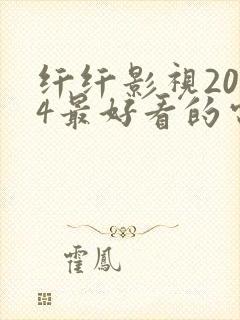 纤纤影視20
4最好看的
霍鳳